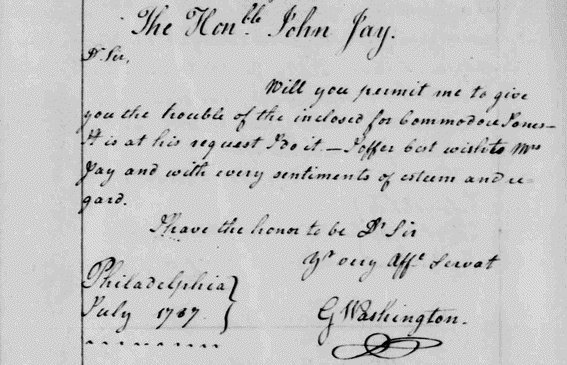 The Hon.ble John Jay.
Dr Sir,
Will you permit me to give
you the trouble of the inclosed for Commodore Jones—
It is at his request I do it. — I offer best wishes to Mrs
Jay and with every sentiments of esteem and re-
gard.
I have the honor to be Dr Sir
Yr very Affe Servat
Philadelphia
July 1787.
G Washington.